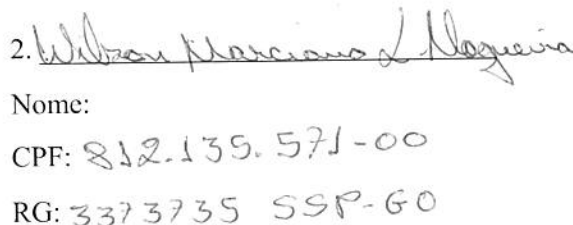 2. Wilson Marciano L Nogueira
Nome:
CPF: 812.135.571-00
RG: 3373735 SSP-GO